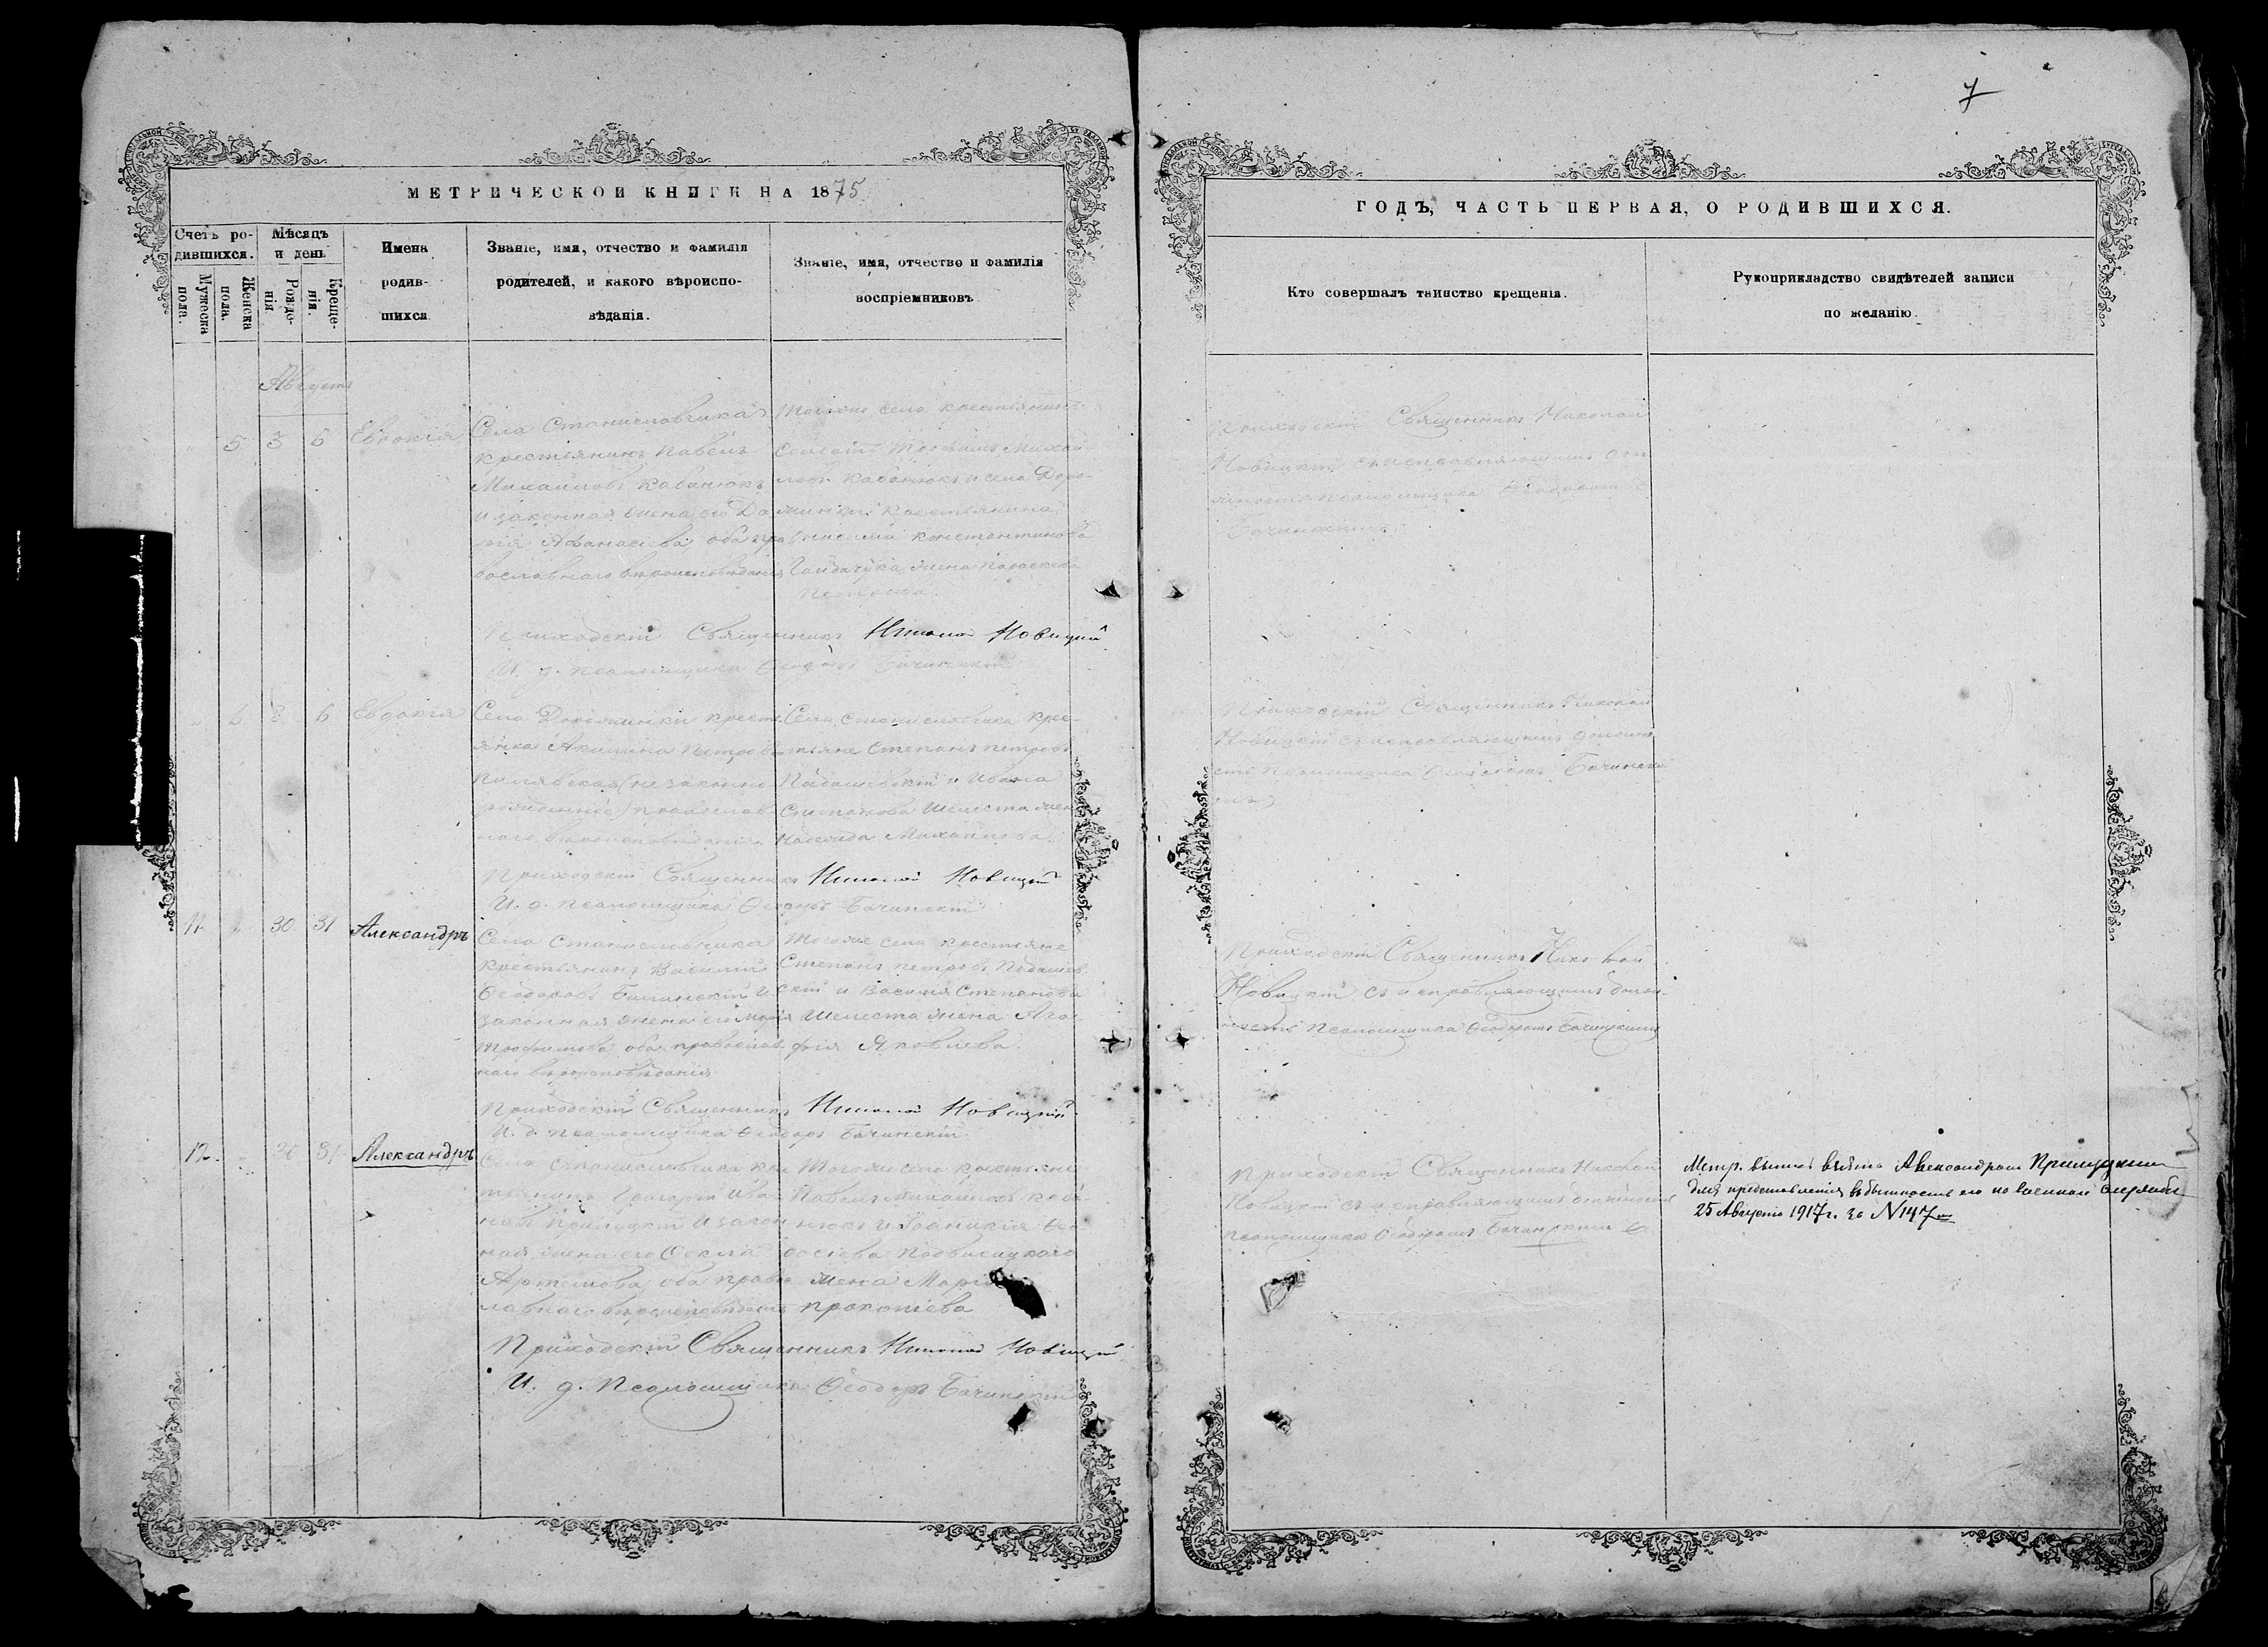 7
МЕТРИЧЕСКОЙ КНИГИ НА 1875
Счетъ ро-
дившихся.
Мужеска
пола.
Женска
пола.
Мѣсяцъ
и день
Рожде-
нія
Креще-
нія.
Имена
родив-
шихся
Званіе, имя, отчество и фамилія
родителей, и какого вѣроиспо-
вѣданія.
Званіе, имя, отчество и фамилія
воспріемниковъ
ГОДЪ, ЧАСТЬ ПЕРВАЯ, О РОДИВШИХСЯ.
Кто совершалъ таинство крещенія.
Рукоприкладство свидѣтелей записи
по желанію.
Августъ
5 3 6 Евдокія
Села Станиславчика
крестьянинъ Павелъ
Михаиловъ Кабанюкъ
и законная жена его Да
рія Аѳанасіева оба пра
вославнаго вѣроисповѣданія
Тогоже села крестьянинъ
Михаи-
ловъ Кабанюкъ и села Доро-
жинки крестьянина
Онисима Константинова
Гайдачука жена Параскева
Петрова
Приходскій Священникъ Николай
Новицкій съ исправляющимъ дол
жность псаломщика Ѳеодоромъ
Бачинскимъ
Приходскій Священникъ Николай Новицкій
И. д. псаломщика Ѳеодоръ Бачинскій
6 6 Евдокія
Села Дорожинки кресть
янка Акилина Петрова
Пилявская (незаконно
рожденное) православ
наго вѣроисповѣданія
Села Станиславчика крес-
тьяне Степанъ Петровъ
и Ивана
Степанова Шелеста жена
Надежда Михаилова
Приходскій Священникъ Николай
Новицкій съ исправляющимъ должно
сть псаломщика Ѳеодоромъ Бачински
мъ
Приходскій Священникъ Николай Новицкій
И. д. псаломщика Ѳеодоръ Бачинскій
11 30 31 Александръ
Села Станиславчика
крестьянинъ Василій
Ѳеодоровъ и
законная жена его Марія
Трофимова оба православ
наго вѣроисповѣданія
Тогоже села крестьяне
Степанъ Петровъ
скій и Василія Степанова
Шелеста жена Ага-
фія Яковлева
Приходскій Священникъ Николай
Новицкій съ исправляющимъ долж-
ность псаломщика Ѳеодоромъ Бачинскимъ
Приходскій Священникъ Николай Новицкій
И. д. псаломщика Ѳеодоръ Бачинскій
12. 30 31 Александръ
Села Станиславчика крес
тьянинъ Григорій Ива
новъ Прилуцкій и закон
ная жена его Ѳекла
Артемова оба право
славнаго вѣроисповѣданія
Тогоже села крестьяне
Павелъ Михаиловъ Каба
нюкъ и Ѳео
досіева Подвысоцкаго
жена Марія
Прокопіева
Приходскій Священникъ Николай
Новицкій съ исправляющимъ должность
псаломщика Ѳеодоромъ Бачинскимъ
Метр. выпись взята Александромъ Прилуцкимъ
для представленія въ бытность его на военной службѣ
25 Августа 1917 г. за № 147
Приходскій Священникъ Николай Новицкій
И. д. Псаломщика Ѳеодоръ Бачинскій